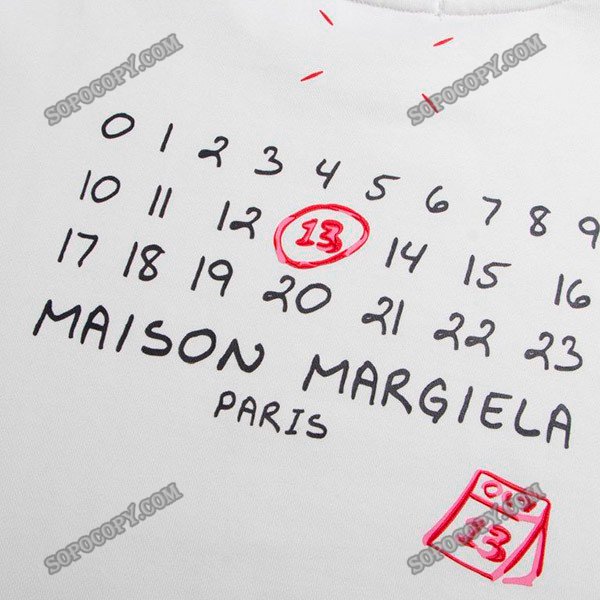 SOPOCOPY.COM
SOPOCOPY.COM
0 1 2 3 4 5 6 7 8 9
10 11 12 13 14 15 16
17 18 19 20 21 22 23
MAISON MARGIELA
PARIS
13
SOPOCOPY.COM
SOPOCOPY.COM